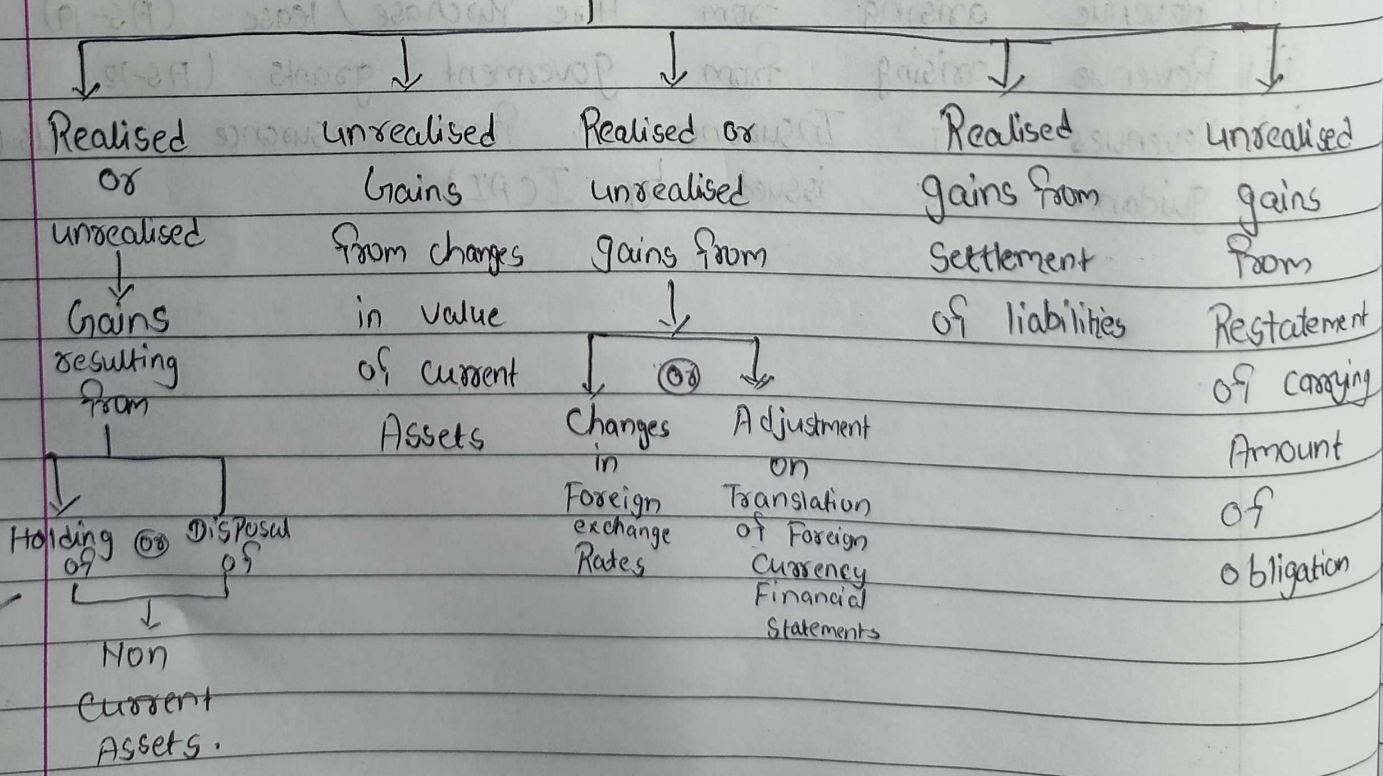 Realised
or
unrealised
Gains
resulting
from
Holding or Disposal
of of
Non
Current
Assets.
unrealised
Gains
from changes
in value
of current
Assets
Realised or
unrealised
gains from
or
Changes
in
Foreign
exchange
Rates
Adjustment
on
Translation
of Foreign
Currency
Financial
Statements
Realised
gains from
Settlement
of liabilities
unrealised
gains
from
Restatement
of carrying
Amount
of
obligation